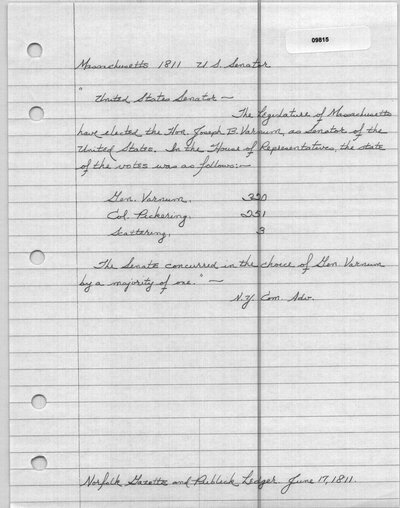 09815
Massachusetts 1811 U.S. Senator
"United States Senator —
The Legislature of Massachusetts
have elected the Hon. Joseph B. Varnum, as Senator of the
United States. In the House of Representatives, the state
of the votes was as follows:—
Gen. Varnum, 320
Col. Pickering, 251
Scattering, 3
The Senate concurred in the choice of Gen. Varnum
by a majority of one." —
N.Y. Com. Adv.
Norfolk Gazette and Publick Ledger June 17, 1811.